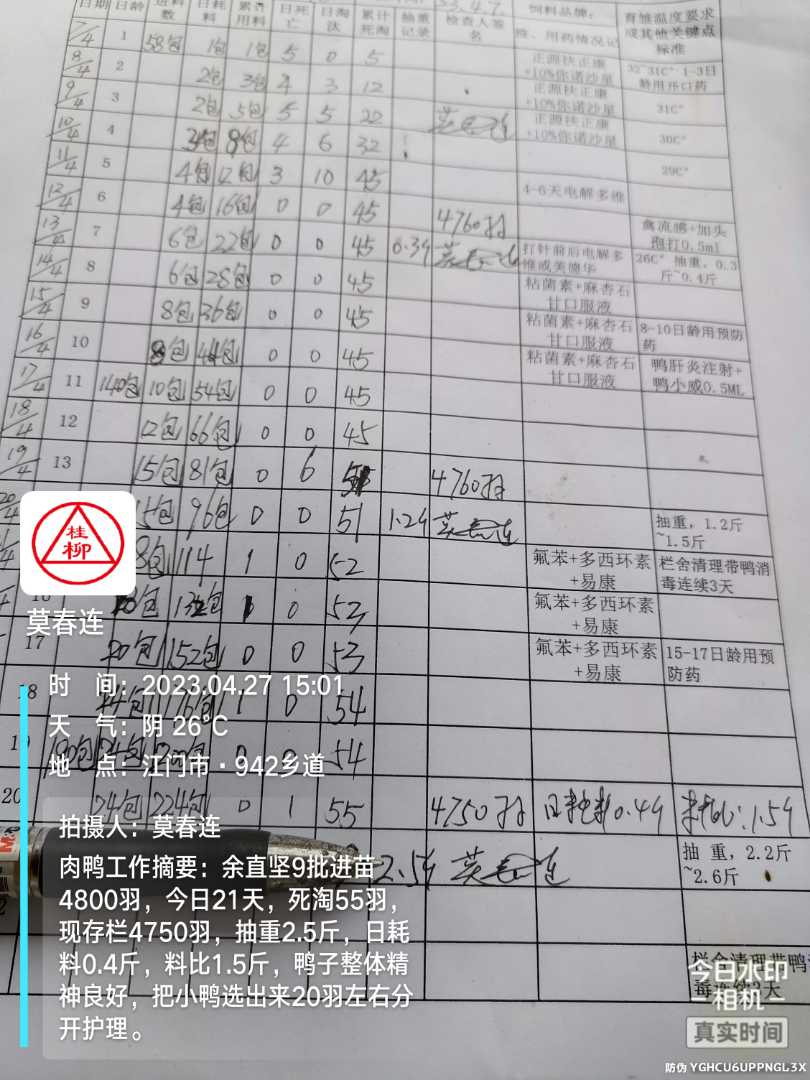 日期 日龄 进料数 日耗料 累香用料 日死亡 日淘汰 累计死淘 抽重记录 检查人签名 饲料品牌： 育雏温度要求或其他关键点标准
7/4 1 58包 1包 1包 5 0 5 正源扶正康+10%你诺沙星
8/4 2 2包 3包 4 3 12 正源扶正康+10%你诺沙星 32~31C° 1-3日龄用开口药
9/4 3 2包 5包 5 5 22 莫春连 正源扶正康+10%你诺沙星 31C°
10/4 4 3包 8包 4 6 32 30C°
11/4 5 4包 12包 3 10 45 29C°
12/4 6 4包 16包 0 0 45 4-6天电解多维
13/4 7 6包 22包 0 0 45 0.3斤 4760羽 莫春连 禽流感+加头孢打0.5ml
14/4 8 6包 28包 0 0 45 打针前后电解多维或美德华 26C° 抽重，0.3斤~0.4斤
15/4 9 8包 36包 0 0 45 粘菌素+麻杏石甘口服液
16/4 10 8包 44包 0 0 45 粘菌素+麻杏石甘口服液 8-10日龄用预防药
17/4 11 140包 10包 54包 0 0 45 粘菌素+麻杏石甘口服液 鸭肝炎注射+鸭小威0.5ML
18/4 12 12包 66包 0 0 45
19/4 13 15包 81包 0 6 51 4760羽
20/4 15包 96包 0 0 51 1.2斤 莫春连 抽重，1.2斤~1.5斤
8包 114 1 0 52 氟苯+多西环素+易康 栏舍清理带鸭消毒连续3天
20包 132包 1 0 53 氟苯+多西环素+易康
17 20包 152包 0 0 53 氟苯+多西环素+易康 15-17日龄用预防药
18 24包 176包 1 0 54
19 190包 24包 200包 0 0 54
20 24包 224包 0 1 55 4750羽 日耗料0.4斤 料比:1.5斤
2.5斤 莫春连 抽重，2.2斤~2.6斤
栏舍清理带鸭消毒连续3天
桂柳
莫春连
时 间：2023.04.27 15:01
天 气：阴 26℃
地 点：江门市·942乡道
拍摄人：莫春连
肉鸭工作摘要：余直坚9批进苗
4800羽，今日21天，死淘55羽，
现存栏4750羽，抽重2.5斤，日耗
料0.4斤，料比1.5斤，鸭子整体精
神良好，把小鸭选出来20羽左右分
开护理。
今日水印
相机
真实时间
防伪 YGHCU6UPPNGL3X